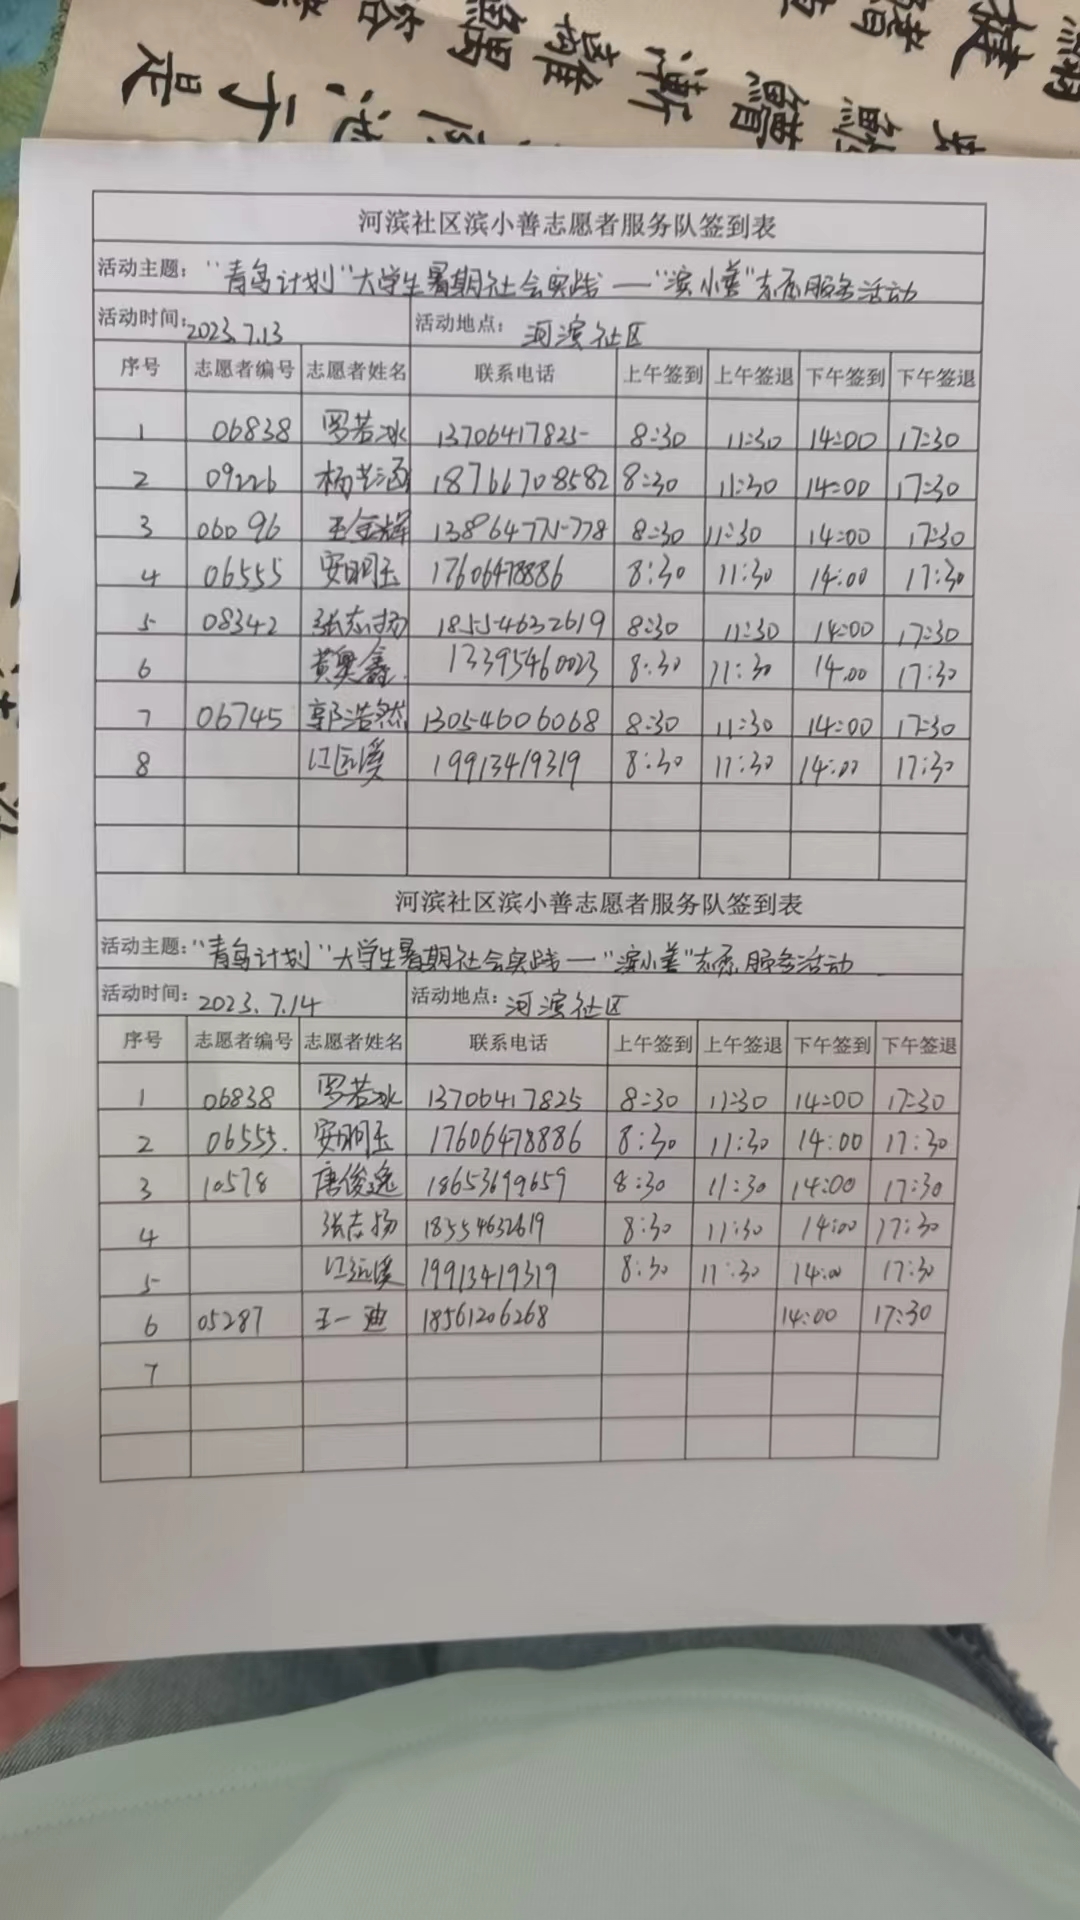 是于池
河滨社区滨小善志愿者服务队签到表
活动主题: "青鸟计划"大学生暑期社会实践——"滨小善"志愿服务活动
活动时间: 2023.7.13 活动地点: 河滨社区
序号 志愿者编号 志愿者姓名 联系电话 上午签到 上午签退 下午签到 下午签退
1 06838 罗若冰 13706417825 8:30 11:30 14:00 17:30
2 09226 杨艺涵 18766708582 8:30 11:30 14:00 17:30
3 06096 王金辉 8:30 11:30 14:00 17:30
4 06555 安玥玉 17606478886 8:30 11:30 14:00 17:30
5 08342 张志扬 18554632619 8:30 11:30 14:00 17:30
6 黄奥鑫 13395460023 8:30 11:30 14:00 17:30
7 06745 郭浩然 13054606068 8:30 11:30 14:00 17:30
8 江远溪 19913419319 8:30 11:30 14:00 17:30
河滨社区滨小善志愿者服务队签到表
活动主题: "青鸟计划"大学生暑期社会实践—"滨小善"志愿服务活动
活动时间: 2023.7.14 活动地点: 河滨社区
序号 志愿者编号 志愿者姓名 联系电话 上午签到 上午签退 下午签到 下午签退
1 06838 罗若冰 13706417825 8:30 11:30 14:00 17:30
2 06555. 安玥玉 17606478886 8:30 11:30 14:00 17:30
3 10578 唐俊逸 18653699659 8:30 11:30 14:00 17:30
4 张志扬 18554632619 8:30 11:30 14:00 17:30
5 江远溪 19913419319 8:30 11:30 14:00 17:30
6 05287 王一迪 18561206268 14:00 17:30
7